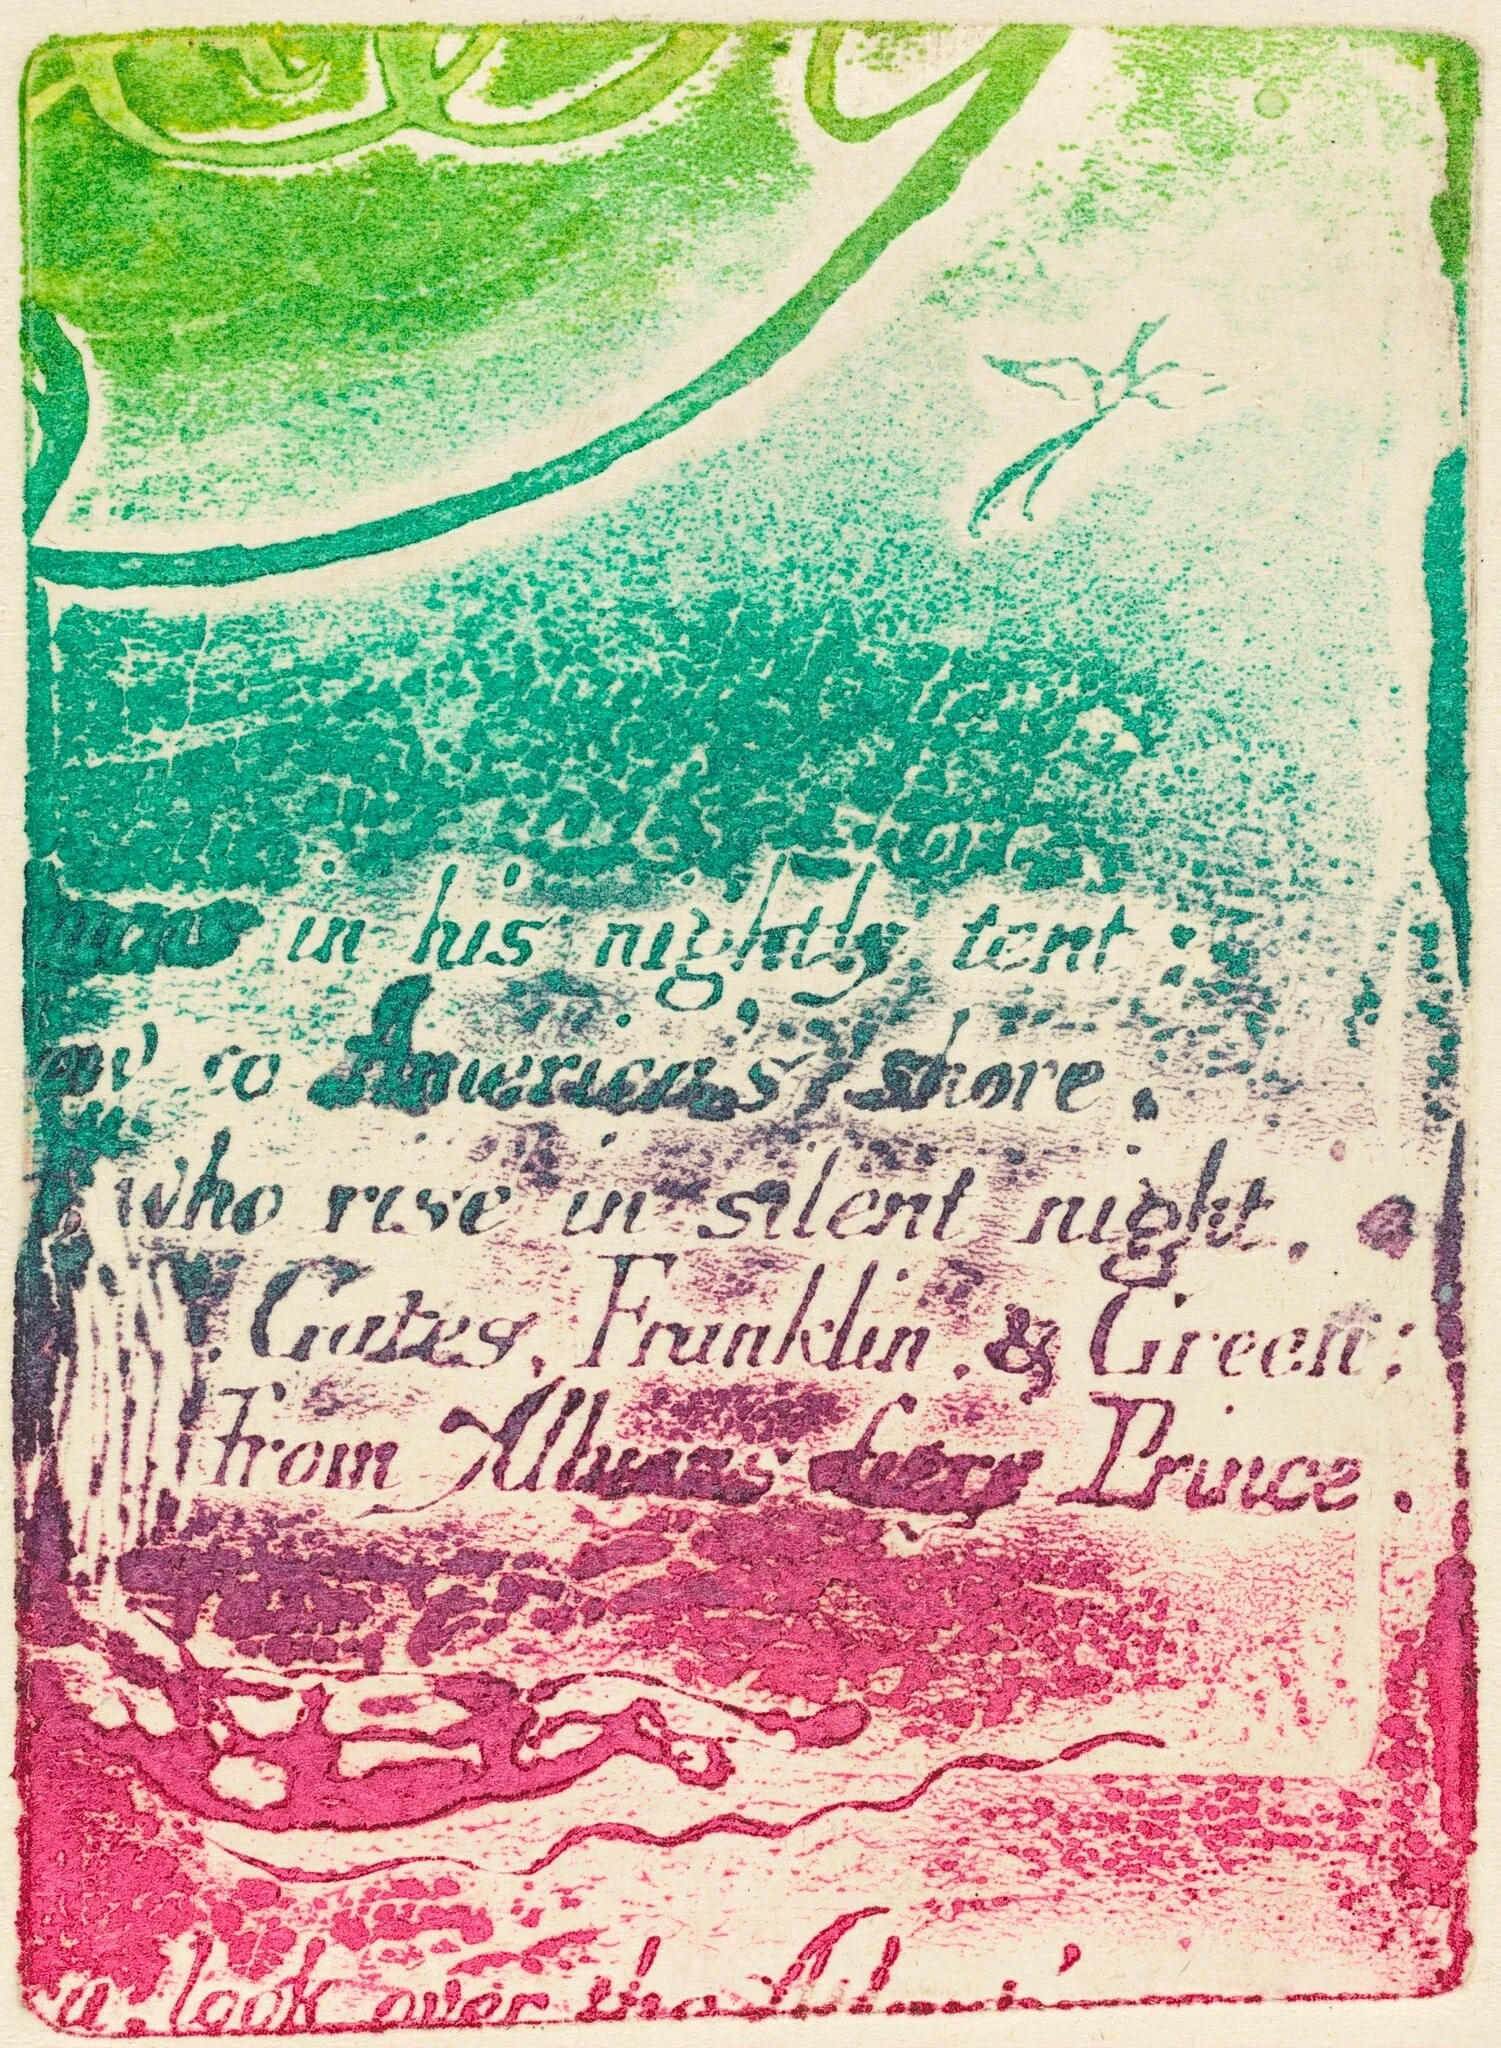 in his nightly tent :
to Americas shore :
who rise in silent night .
Gates, Franklin, & Green ;
From Albions fiery Prince .
a. look over the